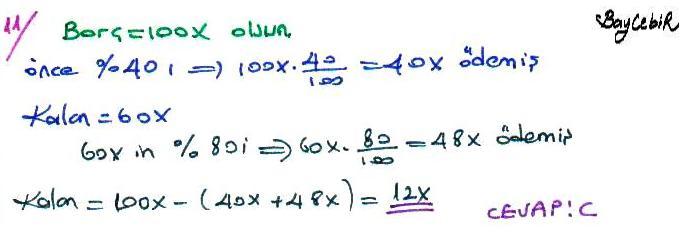 11/ Borç=100X olsun. BayCebiR
önce %40 ı ⇒ 100X.40/100 =40X ödemiş
Kalan=60X
60X in % 80i ⇒ 60X.80/100 =48X ödemiş
Kalan = 100X-(40X+48X)= 12X CEVAP:C